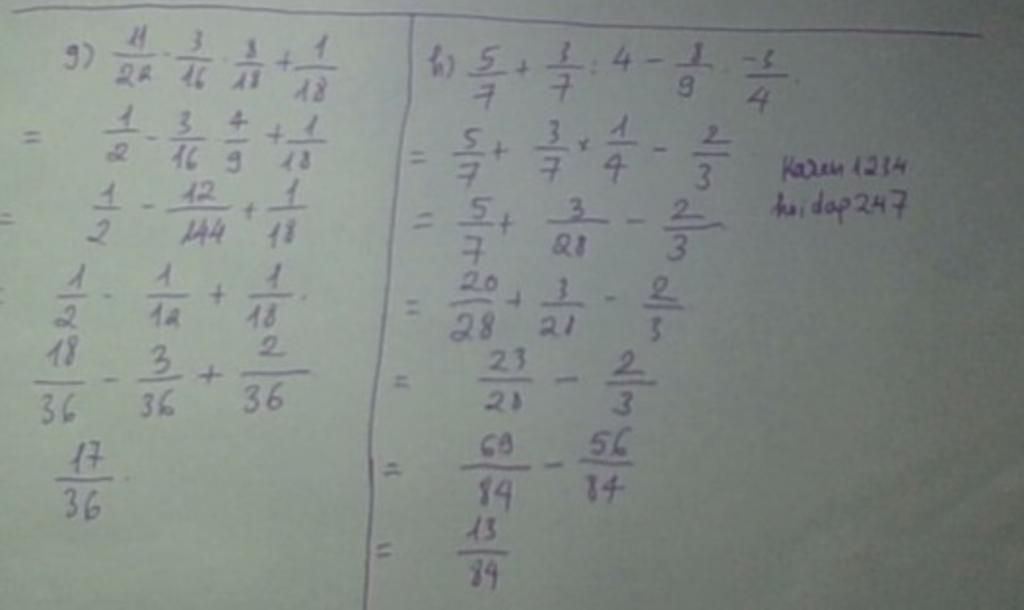 g) 11/22 - 3/16 . 8/18 + 1/18
= 1/2 - 3/16 4/9 + 1/18
= 1/2 - 12/144 + 1/18
= 1/2 - 1/12 + 1/18.
18/36 - 3/36 + 2/36
17/36.
h) 5/7 + 3/7 : 4 - 8/9 . -3/4.
= 5/7 + 3/7 × 1/4 - 2/3
= 5/7 + 3/28 - 2/3
= 20/28 + 3/28 - 2/3
= 23/28 - 2/3
= 69/84 - 56/84
= 13/84
Karen1234
hoidap247